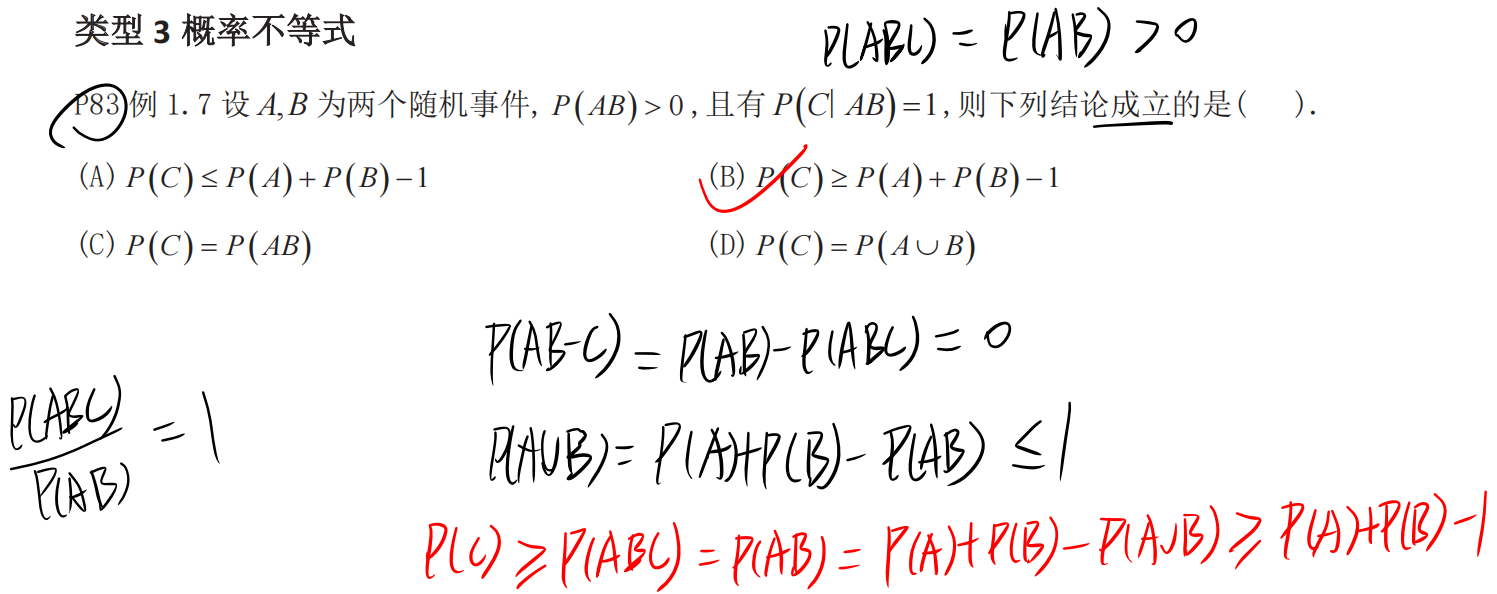 类型 3 概率不等式
P(ABC) = P(AB) > 0
P83 例 1.7 设 A,B 为两个随机事件, P(AB)>0, 且有 P(C| AB)=1, 则下列结论成立的是( ).
(A) P(C) ≤ P(A)+P(B)−1 (B) P(C) ≥ P(A)+P(B)−1
(C) P(C) = P(AB) (D) P(C) = P(A∪B)
P(AB-C) = P(AB) - P(ABC) = 0
P(ABC)/P(AB) = 1
P(A∪B) = P(A)+P(B) - P(AB) ≤ 1
P(C) ≥ P(ABC) = P(AB) = P(A)+P(B) - P(A∪B) ≥ P(A)+P(B)-1